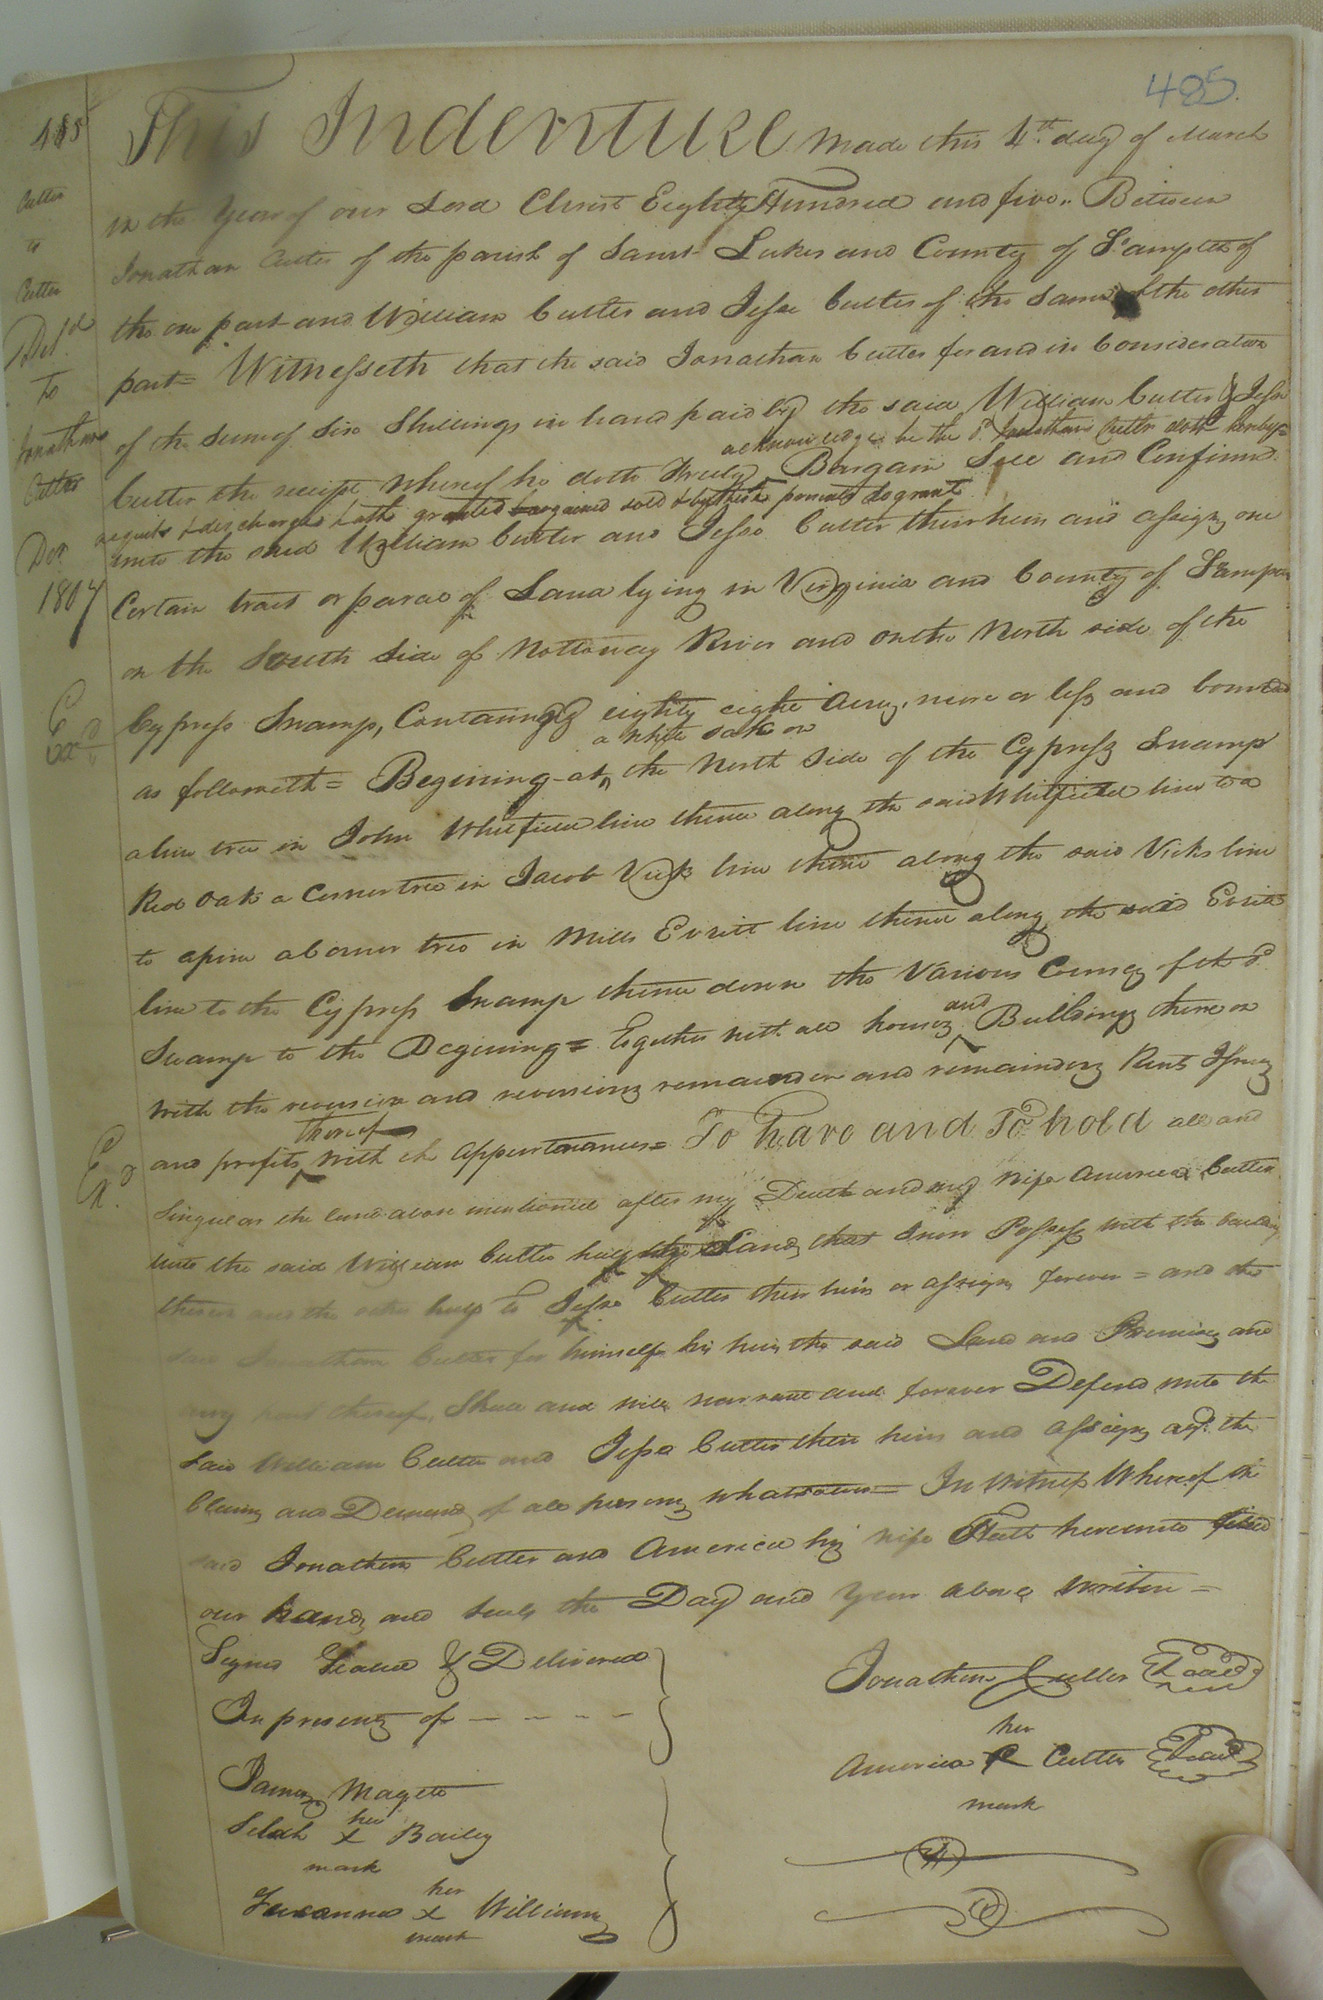 485.
485
Cutler
to
Cutler
Deld
To
Jonathan
Cutler
Decr
1807
Exd
Exd
This Indenture made this 4th day of March
in the Year of our Lord Christ Eighty Hundred and five Between
Jonathan Cutler of the parish of Saint Lukes and County of S.ampton of
the one part and William Cutler and Jesse Cutler of the same of the other
part = Witnesseth that the said Jonathan Cutler for and in Consideration
of the sum of Six Shillings in hand paid by the said William Cutler & Jesse
acknowledge he the sd Jonathan Cutler doth hereby
Cutler the receipt whereof he doth Freely Bargain Sell and Confirmd.
acquit & discharge hath granted bargained sold & by these presents do grant
unto the said William Cutler and Jesse Cutler their heirs and assigns one
Certain tract or parcel of Land lying in Virginia and County of S.ampton
on the South side of Nottoway River and on the North side of the
Cypress Swamp, Containing eighty eight Acres, more or less and bounded
a white oak on
as followeth = Begining at the North side of the Cypress Swamp
a line tree in John Whitfield line thence along the said Whitfield line to a
Red Oak a corner tree in Jacob Vick line thence along the said Vicks line
to a pine a corner tree in Mills Evritt line thence along the said Evritt
line to the Cypress Swamp thence down the Various Courses of the sd
and
Swamp to the Begining = Together with all houses Buildings there on
with the reversion and reversions remainder and remainders Rents Issues
thereof
and profits with the Appurtenances = To have and To hold all and
Singular the land above mentioned after my Death and my wife America Cutler
unto the said William Cutler half the Land that I now Possess with the building
thereon and the other half to Jesse Cutler their heirs or assigns forever = and the
said Jonathan Cutler for himself his heirs the said Land and Premises and
any part thereof, Shall and will warrant and forever Defend unto the
said William Cutler and Jesse Cutler their heirs and assigns agt. the
Claims and Demands of all persons whatsoever = In Witness Whereof the
said Jonathan Cutler and America his wife Hath hereunto
our hands and seals the Day and Year above writen =
Signed Sealed & Delivered
In presents of - - - - -
James Magett
her
Selah x Bailey
mark
her
Susanna x Williams
mark
Jonathan Cutler Seal
her
America x Cutler Seal
mark